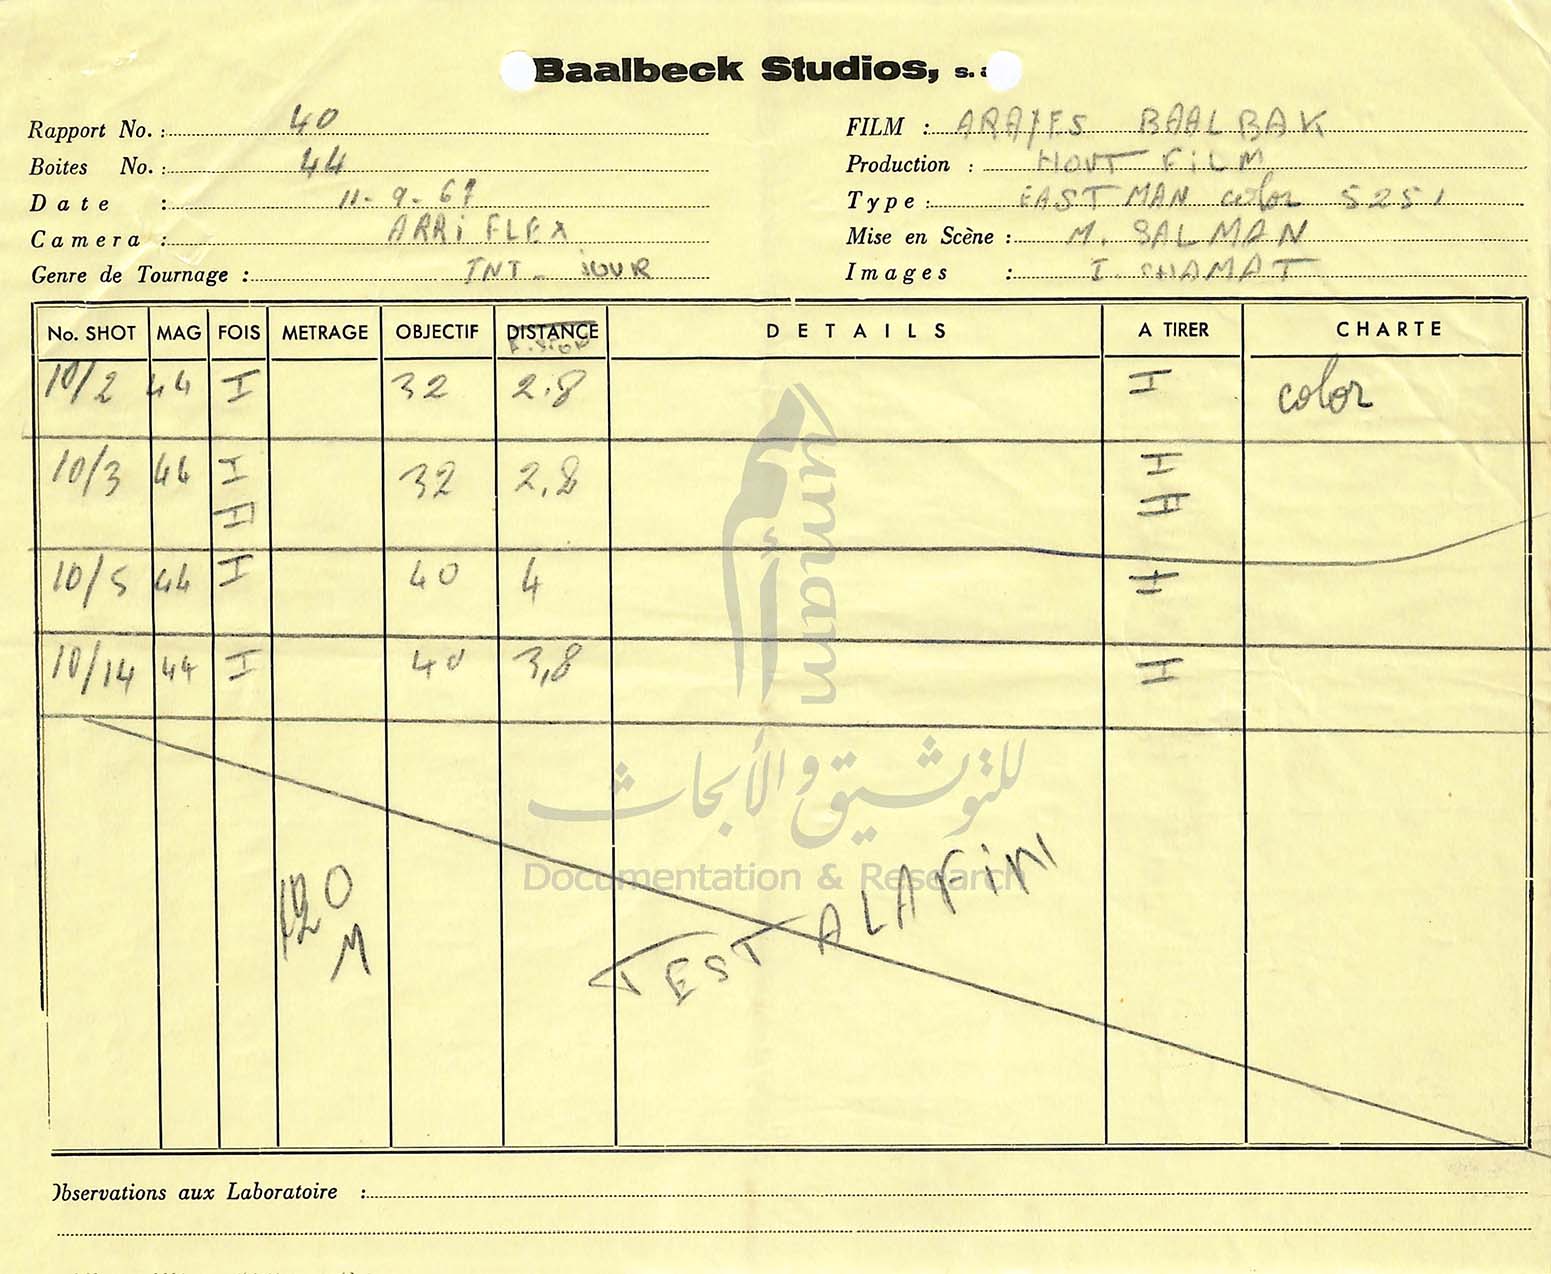 Baalbeck Studios, s.
Rapport No. : 40
Boites No. : 44
Date : 11-9-67
Camera : ARRiFLEX
Genre de Tournage : INT - JOUR
FILM : ARAYES BAALBAK
Production : FILM
Type : EASTMAN color 5251
Mise en Scène : M. SALMAN
Images : I. SHAMAT
No. SHOT MAG FOIS METRAGE OBJECTIF DISTANCE DETAILS A TIRER CHARTE
10/2 44 I 32 2.8 I color
10/3 44 I 32 2,8 I
II II
10/5 44 I 40 4 I
10/14 44 I 40 3,8 I
120
M
TEST ALAFiN
umam
للتوثيق والأبحاث
Documentation & Research
Observations aux Laboratoire :